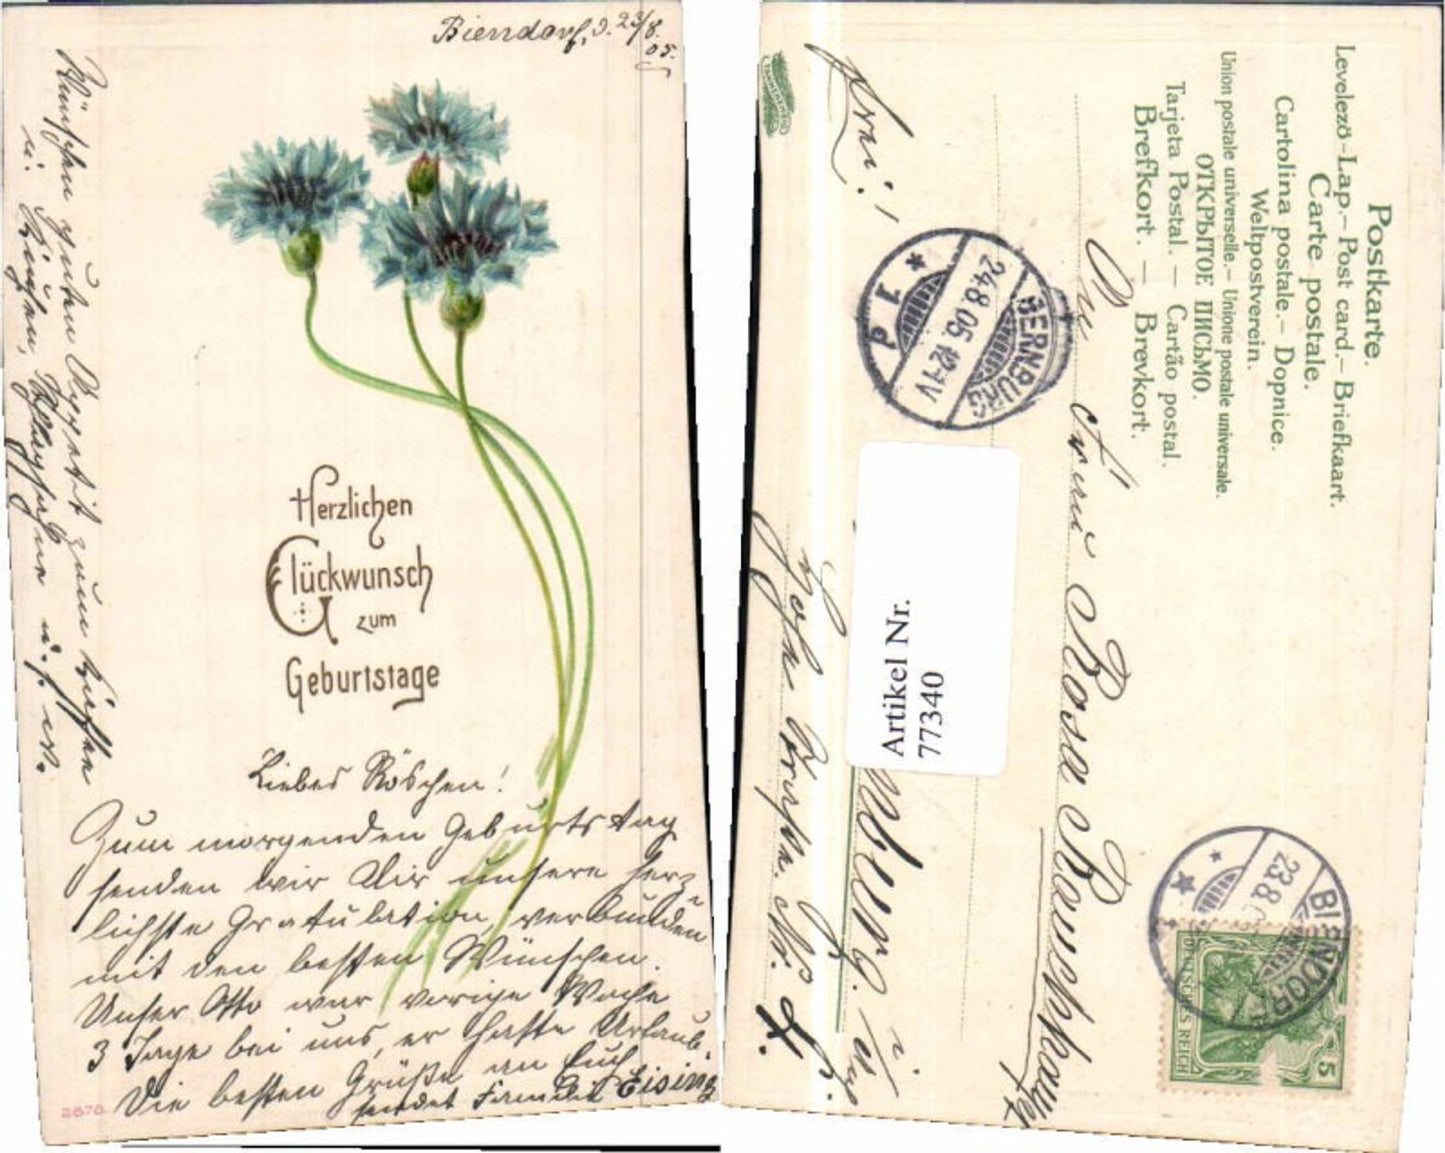 Biendorf, d. 23/8. 05.
Herzlichen
Glückwunsch
zum
Geburtstage
Liebes Röschen!
Zum morgenden Geburtstag
senden wir Dir unsere herz-
lichste Gratulation, verbunden
mit den besten Wünschen.
Unser Otto war vorige Woche
3 Tage bei uns, er hatte Urlaub.
Die besten Grüße an Euch
sendet Familie Eising
Wünschen guten Appetit zum
u.
2676
Postkarte.
Levelező-Lap.– Post card.– Briefkaart.
Carte postale.
Cartolina postale.– Dopnice.
Weltpostverein.
Union postale universelle.– Unione postale universale.
ОТКРЫТОЕ ПИСЬМО.
Tarjeta Postal. — Cartão postal.
Brefkort. — Brevkort.
An
Frau Rosa
in
Frei!
Hohe Straße. Nr. 4.
BERNBURG
24.8.05. 12-1V
* 1 d
BIENDORF
23.8.
DEUTSCHES REICH
5
Artikel Nr.
77340